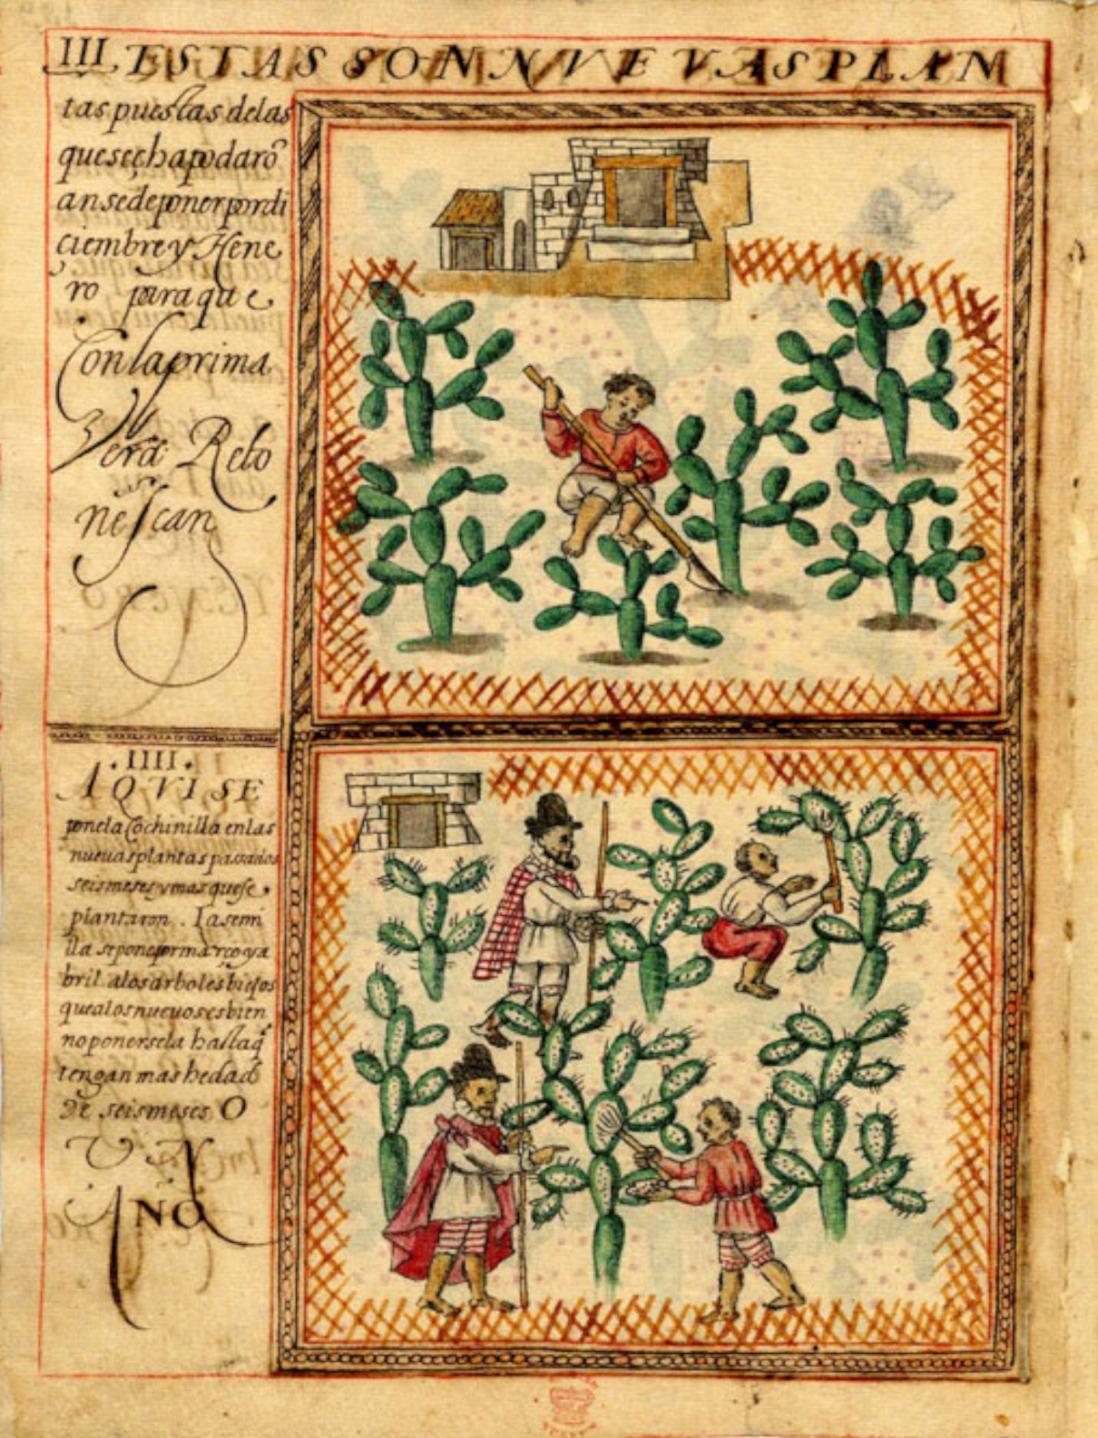 III ESTAS SON NVEVAS PLAN
tas puestas delas
que se chapodarõ
an se de poner por di
ciembre y Hene
ro para que
Con la prima
Vera Reto
nescan
.IIII.
AQVI SE
pone la Cochinilla en las
nueuas plantas passados
seis meses y mas que se
plantaron. La semi
lla se pone por março y a
bril alos arboles biejos
que alos nueuos es bien
no ponersela hasta q̃
tengan mas hedad
De seis meses O
VN
AÑO